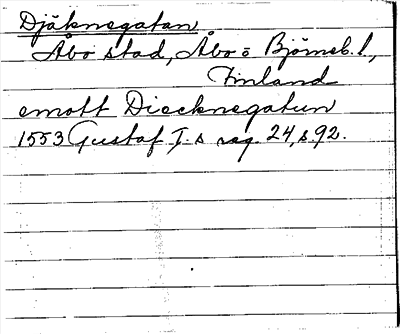 Djäknegatan
Åbo stad, Åbo o Björneb. l.,
Finland
emott Diecknegatun
1553 Gustaf I.s reg. 24, s. 92.